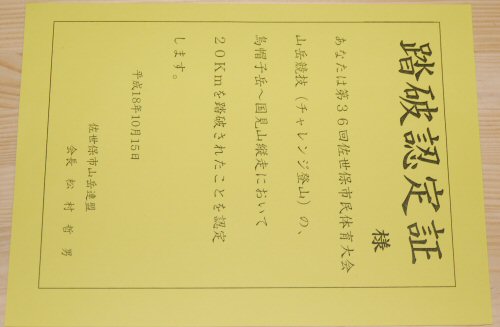 踏破認定証
様
あなたは第36回佐世保市民体育大会
山岳競技（チャレンジ登山）の、
烏帽子岳へ国見山縦走において
20Kmを踏破されたことを認定
します。
平成18年10月15日
佐世保市山岳連盟
会長 松村哲男